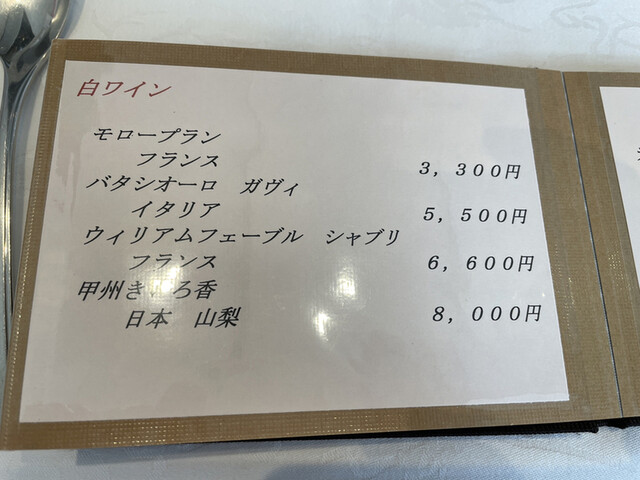 白ワイン
モロープラン
フランス 3,300円
バタシオーロ ガヴィ
イタリア 5,500円
ウィリアムフェーブル シャブリ
フランス 6,600円
甲州き ろ香
日本 山梨 8,000円